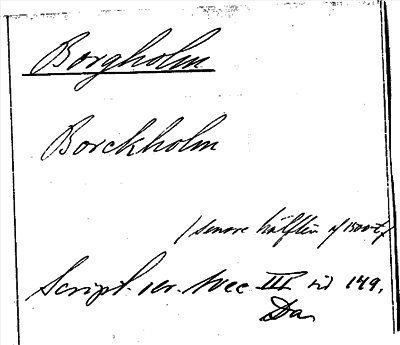 Borgholm
Borckholm
(senare hälften af 1500-t.)
Script. rer. svec. III sid 149.
Da